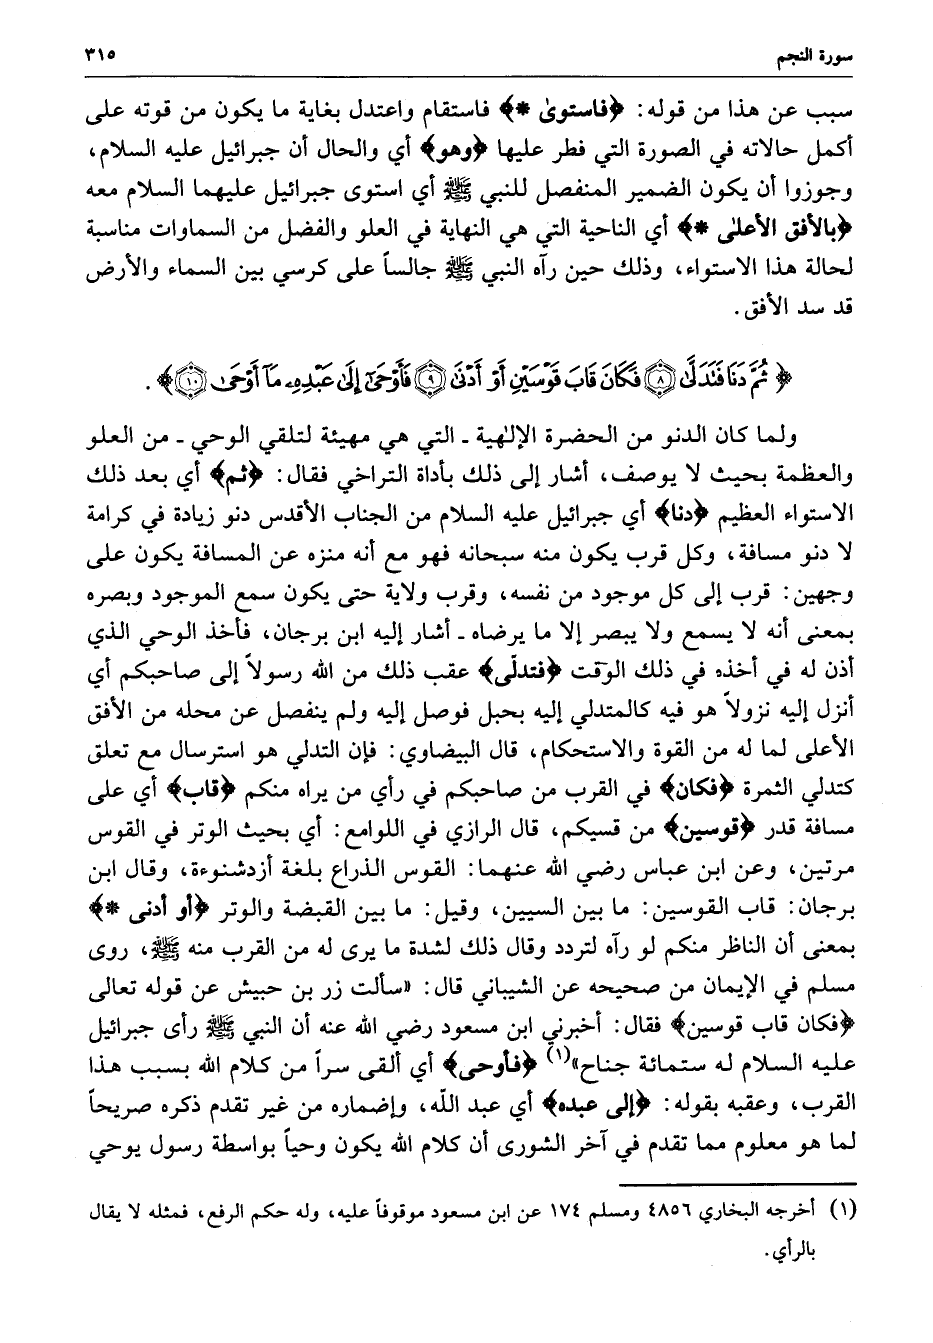 سورة النجم ٣١٥
سبب عن هذا من قوله: ﴿فاستوىٰ *﴾ فاستقام واعتدل بغاية ما يكون من قوته على
أكمل حالاته في الصورة التي فطر عليها ﴿وهو﴾ أي والحال أن جبرائيل عليه السلام،
وجوزوا أن يكون الضمير المنفصل للنبي ﷺ أي استوى جبرائيل عليهما السلام معه
﴿بالأفق الأعلىٰ *﴾ أي الناحية التي هي النهاية في العلو والفضل من السماوات مناسبة
لحالة هذا الاستواء، وذلك حين رآه النبي ﷺ جالساً على كرسي بين السماء والأرض
قد سد الأفق.
﴿ ثُمَّ دَنَا فَتَدَلَّىٰ ﴿٨﴾ فَكَانَ قَابَ قَوْسَيْنِ أَوْ أَدْنَىٰ ﴿٩﴾ فَأَوْحَىٰٓ إِلَىٰ عَبْدِهِۦ مَآ أَوْحَىٰ ﴿١٠﴾ ﴾.
ولما كان الدنو من الحضرة الإلٰهية ـ التي هي مهيئة لتلقي الوحي ـ من العلو
والعظمة بحيث لا يوصف، أشار إلى ذلك بأداة التراخي فقال: ﴿ثم﴾ أي بعد ذلك
الاستواء العظيم ﴿دنا﴾ أي جبرائيل عليه السلام من الجناب الأقدس دنو زيادة في كرامة
لا دنو مسافة، وكل قرب يكون منه سبحانه فهو مع أنه منزه عن المسافة يكون على
وجهين: قرب إلى كل موجود من نفسه، وقرب ولاية حتى يكون سمع الموجود وبصره
بمعنى أنه لا يسمع ولا يبصر إلا ما يرضاه ـ أشار إليه ابن برجان، فأخذ الوحي الذي
أذن له في أخذه في ذلك الوقت ﴿فتدلّى﴾ عقب ذلك من الله رسولاً إلى صاحبكم أي
أنزل إليه نزولاً هو فيه كالمتدلي إليه بحبل فوصل إليه ولم ينفصل عن محله من الأفق
الأعلى لما له من القوة والاستحكام، قال البيضاوي: فإن التدلي هو استرسال مع تعلق
كتدلي الثمرة ﴿فكان﴾ في القرب من صاحبكم في رأي من يراه منكم ﴿قاب﴾ أي على
مسافة قدر ﴿قوسين﴾ من قسيكم، قال الرازي في اللوامع: أي بحيث الوتر في القوس
مرتين، وعن ابن عباس رضي الله عنهما: القوس الذراع بلغة أزدشنوءة، وقال ابن
برجان: قاب القوسين: ما بين السيين، وقيل: ما بين القبضة والوتر ﴿أو أدنى *﴾
بمعنى أن الناظر منكم لو رآه لتردد وقال ذلك لشدة ما يرى له من القرب منه ﷺ، روى
مسلم في الإيمان من صحيحه عن الشيباني قال: «سألت زر بن حبيش عن قوله تعالى
﴿فكان قاب قوسين﴾ فقال: أخبرني ابن مسعود رضي الله عنه أن النبي ﷺ رأى جبرائيل
عليه السلام له ستمائة جناح»(١) ﴿فأوحى﴾ أي ألقى سراً من كلام الله بسبب هذا
القرب، وعقبه بقوله: ﴿إلى عبده﴾ أي عبد اللّه، وإضماره من غير تقدم ذكره صريحاً
لما هو معلوم مما تقدم في آخر الشورى أن كلام الله يكون وحياً بواسطة رسول يوحي
(١) أخرجه البخاري ٤٨٥٦ ومسلم ١٧٤ عن ابن مسعود موقوفاً عليه، وله حكم الرفع، فمثله لا يقال
بالرأي.